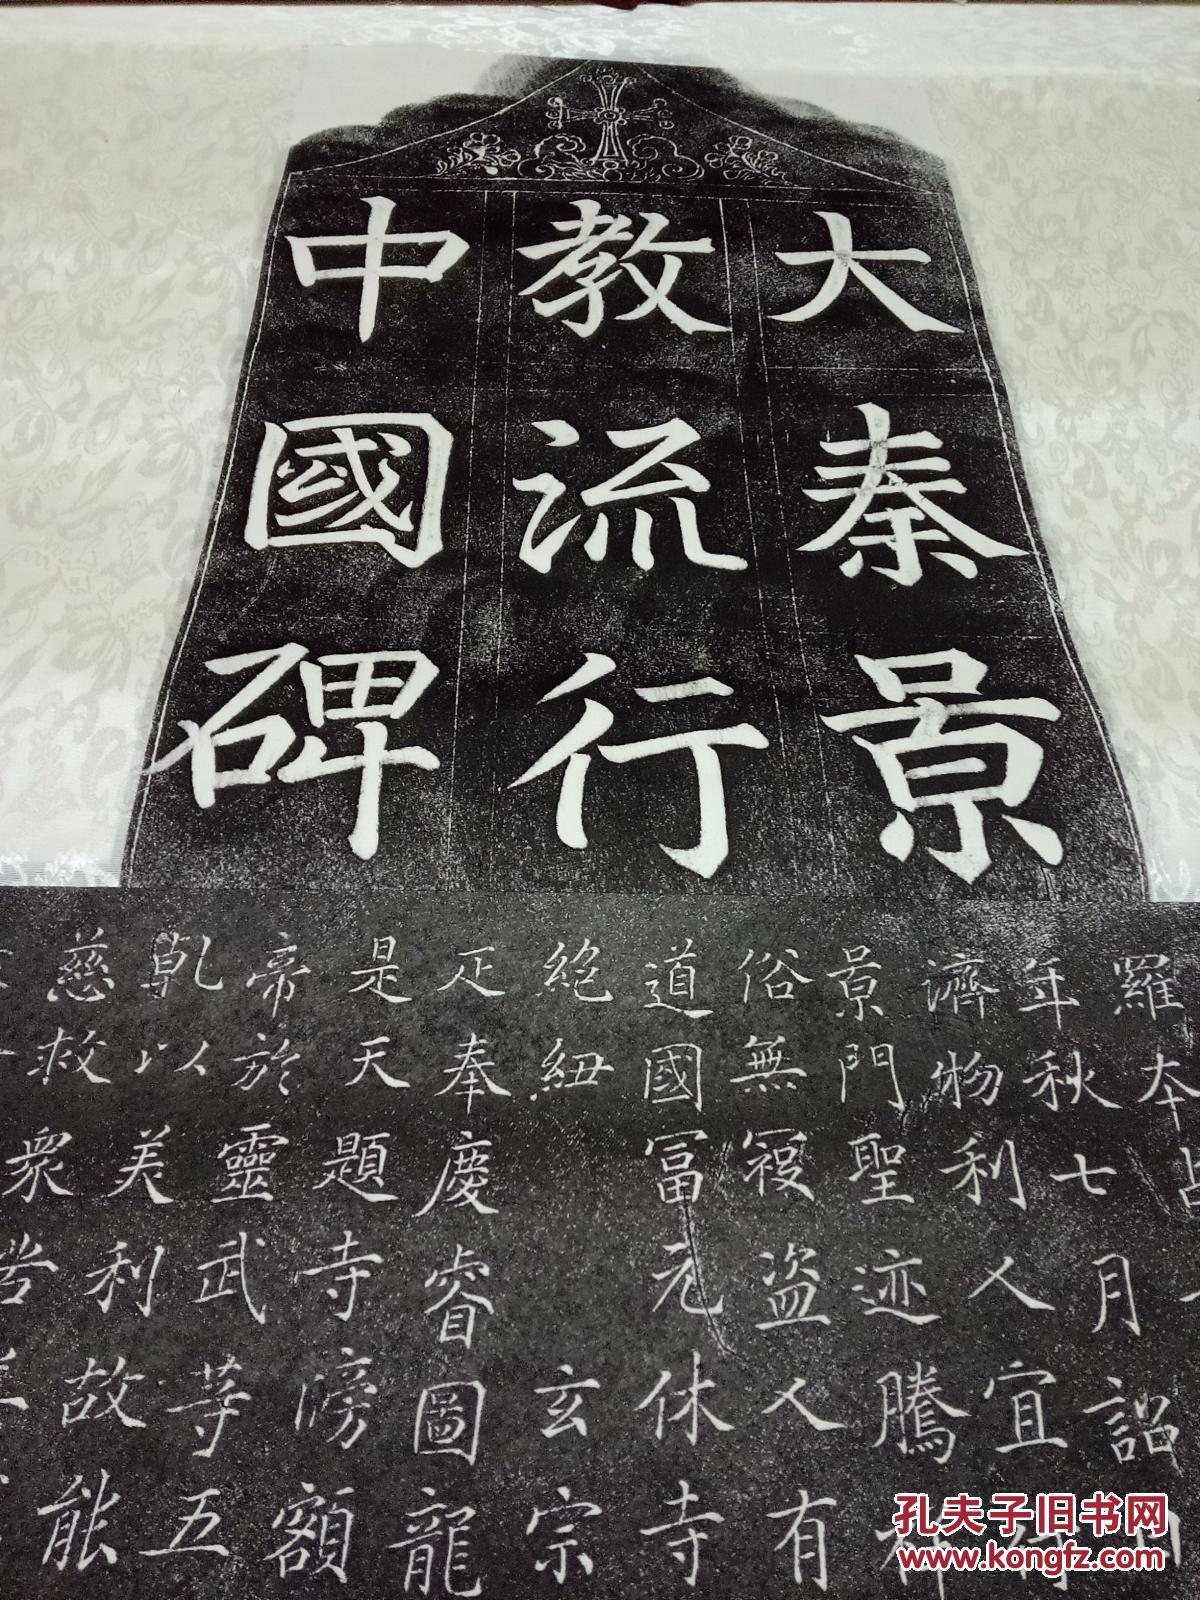 大秦景
教流行
中國碑
羅本
年秋七月詔
濟物利人宜
景門聖迹騰
俗無寇盜人有
道國富元休寺
絕紐 玄宗
疋奉慶睿圖龍
是天題寺牓額
帝於靈武等五
乹以美利故能
慈救衆
孔夫子旧书网
www.kongfz.com